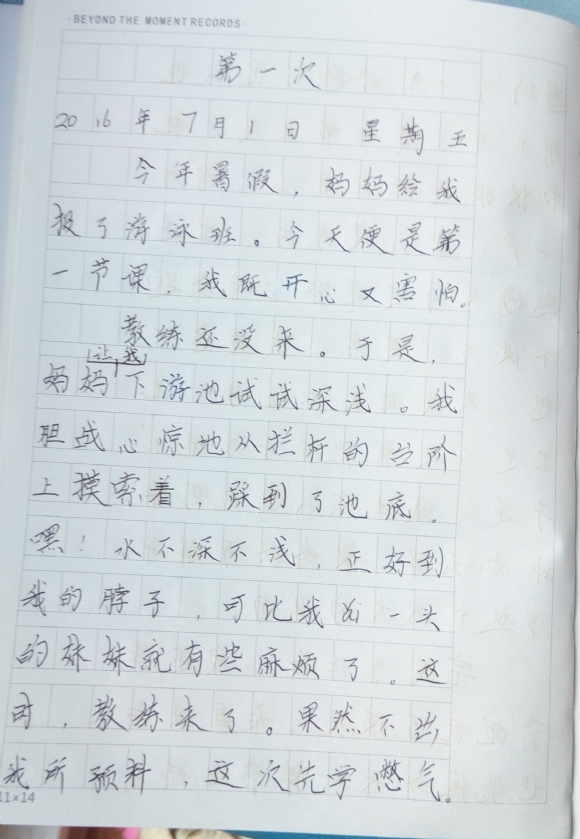 · BEYOND THE MOMENT RECORDS ·
第一次
2016年7月1日 星期五
今年暑假，妈妈给我
报了游泳班。今天便是第
一节课，我既开心又害怕。
教练还没来。于是，
让我
妈妈下游池试试深浅。我
胆战心惊地从拦杆的台阶
上摸索着，踩到了池底。
嘿！水不深不浅，正好到
我的脖子，可比我ǎi一头
的妹妹就有些麻烦了。这
时，教练来了。果然不出
我所预料，这次先学憋气。
11×14